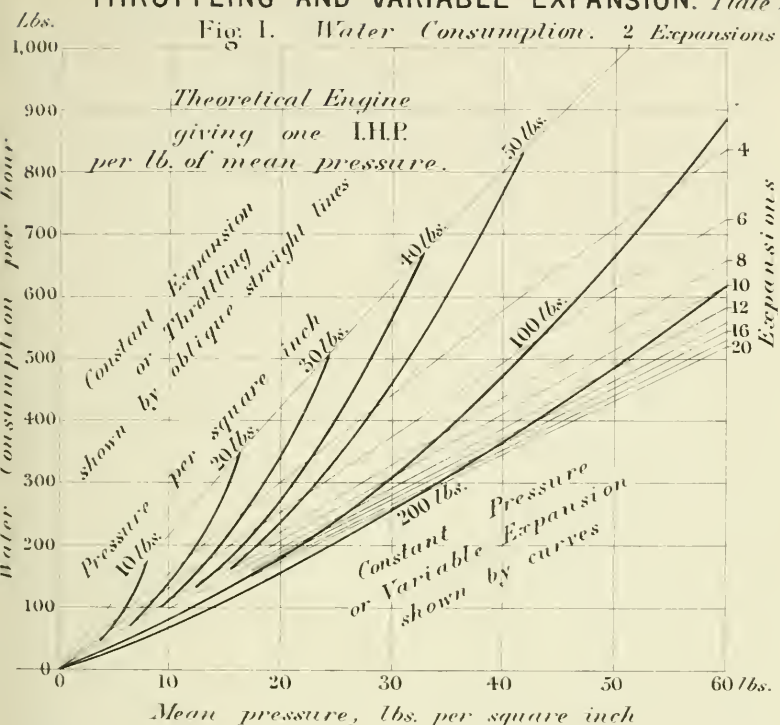 THROTTLING AND VARIABLE EXPANSION. Plate
Lbs.
Fig. 1. Water Consumption. 2 Expansions
1,000
900
800
700
600
500
400
300
200
100
0
Water Consumption per hour
Theoretical Engine
giving one I.H.P.
per lb. of mean pressure.
Constant Expansion
or Throttling
shown by oblique straight lines
Pressure per square inch
10 lbs.
20 lbs.
30 lbs.
40 lbs.
50 lbs.
100 lbs.
200 lbs.
Constant Pressure
or Variable Expansion
shown by curves
4
6
8
10
12
16
20
Expansions
0
10
20
30
40
50
60 lbs.
Mean pressure, lbs. per square inch